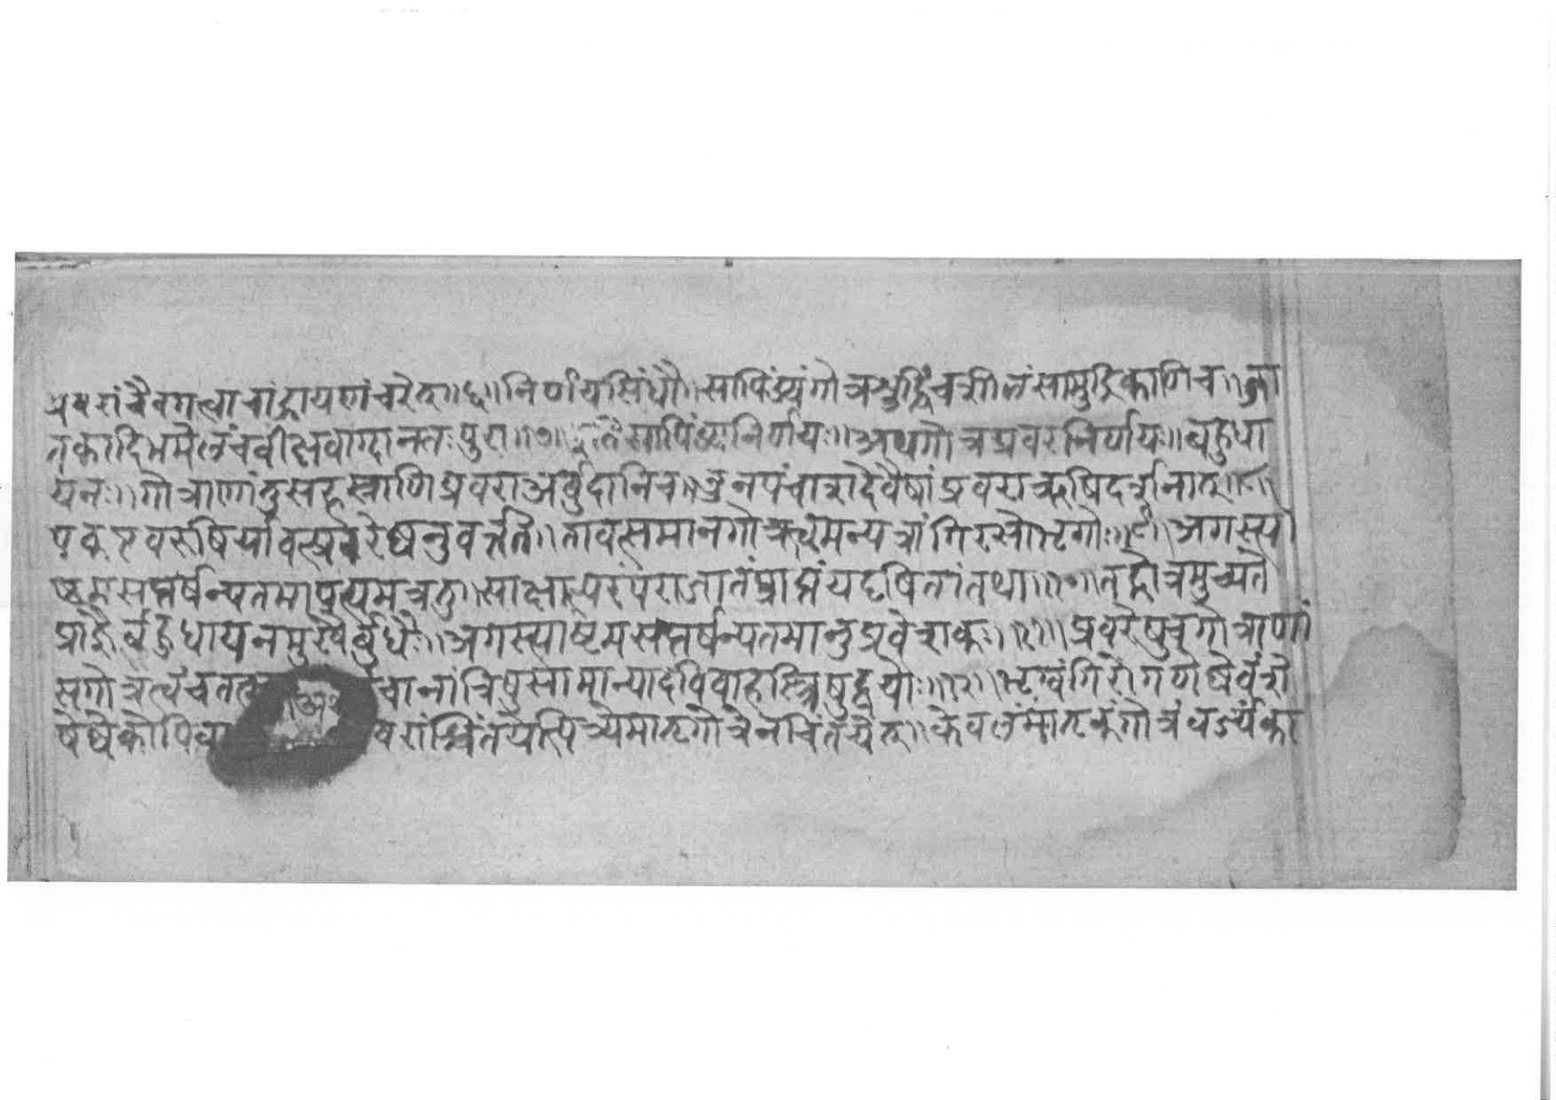 प्रवरां चैव गत्वा चांद्रायणं चरेत्॥६॥निर्णयसिंधौ॥सापिंड्यं गोत्रशुद्धिं च शीलं सामुद्रिकाणि च॥जा
तकादिभमेलं च वीक्ष वाग्दानतः पुरा॥७॥इति सापिंड्यनिर्णयः॥अथ गोत्रप्रवरनिर्णयः॥बहुधा
यनः॥गोत्राणां तु सहस्राणि प्रवरा अर्बुदानि च॥ऊनपंचाशदेवैषां प्रवरा ऋषिदर्शनात्॥८॥
एक एव ऋषिर्यावत्प्रवरेष्वनुवर्त्तते॥तावत्समानगोत्रत्वमन्यत्रांगिरसोभृगोः॥९॥अगस्त्यो
ष्टमसप्तर्षन्यतमापत्यमत्र तु॥साक्षात्परंपराजातं प्राप्तं यदृषितां तथा॥१०॥तद्गोत्रमुच्यते
प्राज्ञैर्बहुधायनमुख्यैर्बुधैः॥अगस्त्याष्टमसप्तर्षन्यतमानुप्रवेशकः॥११॥प्रवरेषु च गोत्राणां
सगोत्रत्वं च तत्स्म चानां त्रिषु सामान्यादविवाहस्त्रिषु द्वयोः॥१२॥भृग्वंगिरोगणेष्वेवं शे
षेष्वेकोपि वा वरांश्चिंतयेत्पित्र्येमातृगोत्रे न चिंतयेत्॥केवलं मातृकं गोत्रं वर्ज्यं का